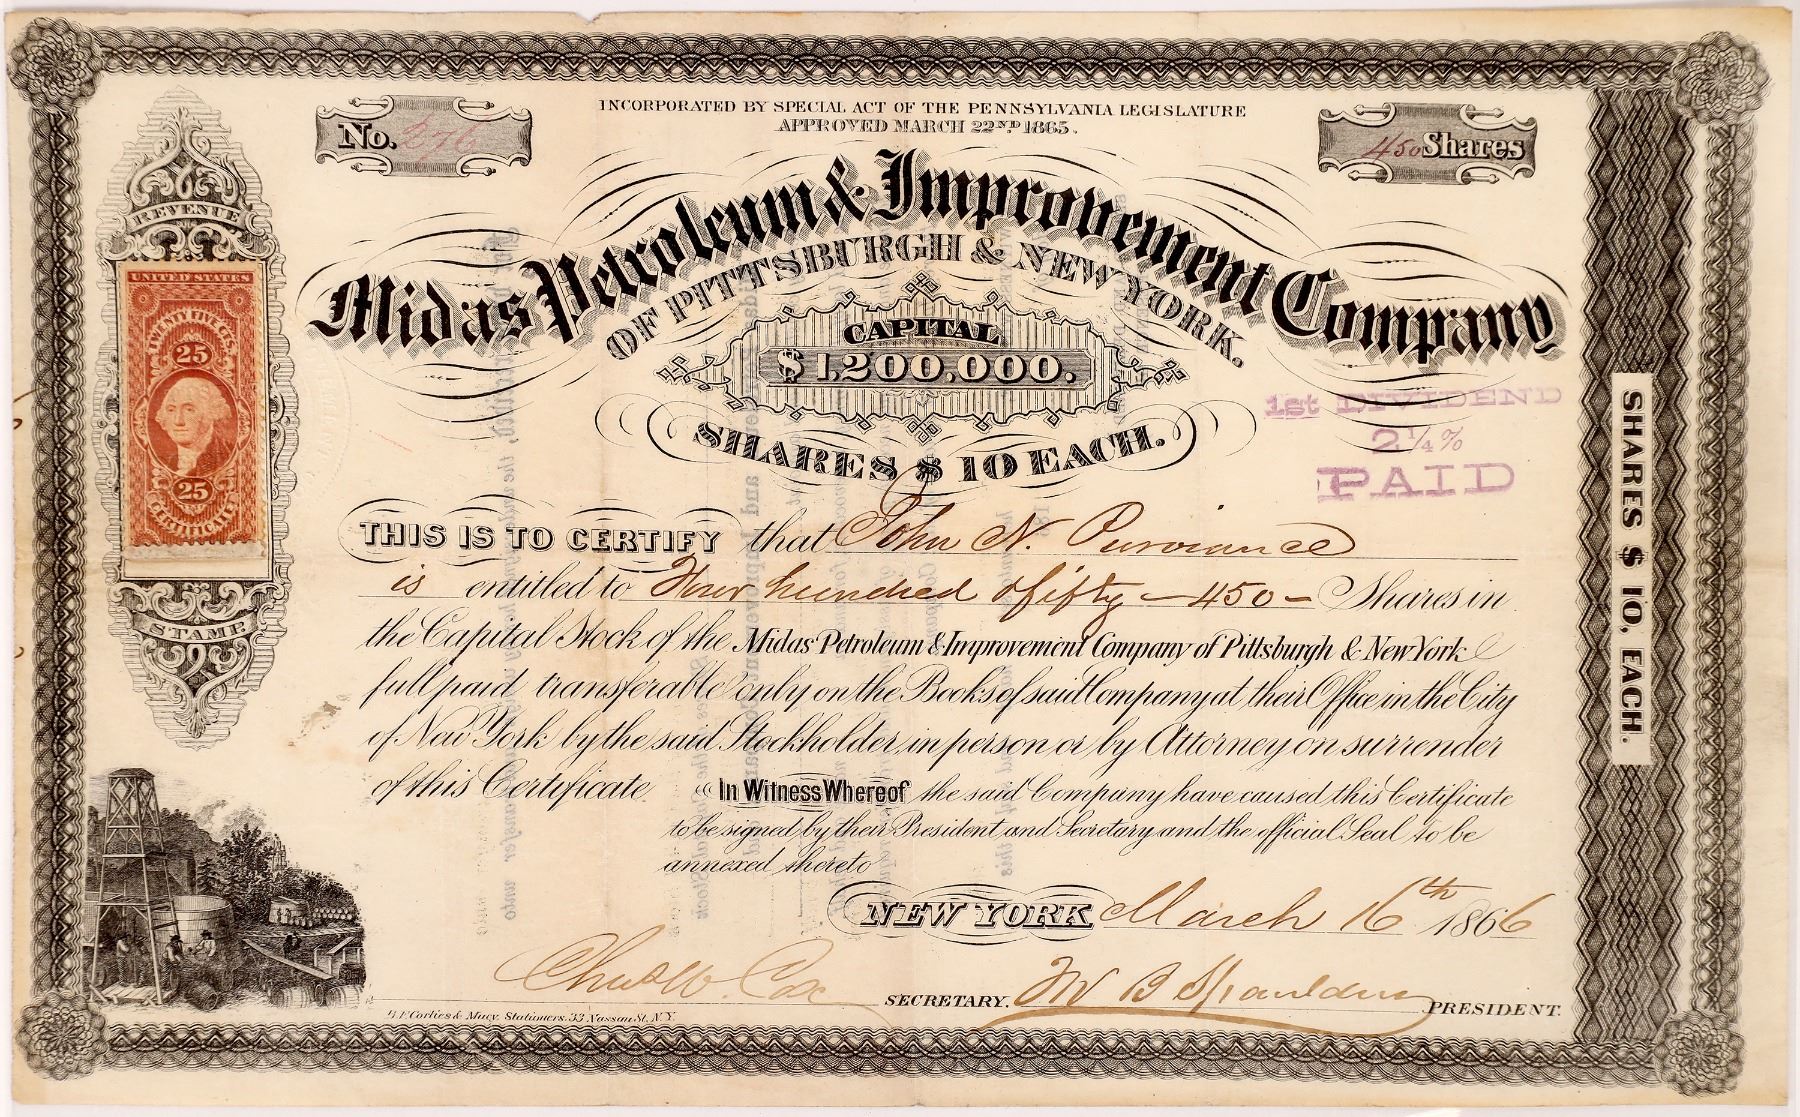 INCORPORATED BY SPECIAL ACT OF THE PENNSYLVANIA LEGISLATURE
APPROVED MARCH 22ND 1865.
No. 276
450 Shares
Midas Petroleum & Improvement Company
OF PITTSBURGH & NEW YORK.
CAPITAL
$1,200,000.
SHARES $10 EACH.
REVENUE
UNITED STATES
TWENTY FIVE CTS.
25
25
CERTIFICATE
STAMP.
1st DIVIDEND
2 1/4 %
PAID
THIS IS TO CERTIFY that John N. Purviance
is entitled to Four hundred & fifty — 450 — Shares in
the Capital Stock of the Midas Petroleum & Improvement Company of Pittsburgh & New York
full paid transferable only on the Books of said Company at their Office in the City
of New York by the said Stockholder, in person or by Attorney on surrender
of this Certificate. In Witness Whereof the said Company have caused this Certificate
to be signed by their President and Secretary and the official Seal to be
annexed thereto
NEW YORK March 16th 1866
Chas W. Cox SECRETARY. W B Spaulding PRESIDENT.
Corlies & Macy. Stationers. 33 Nassau St. N.Y.
SHARES $10, EACH.